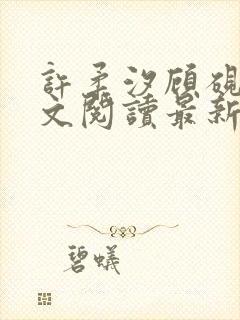 許柔汐顧硯
文閱讀最新
碧蟻